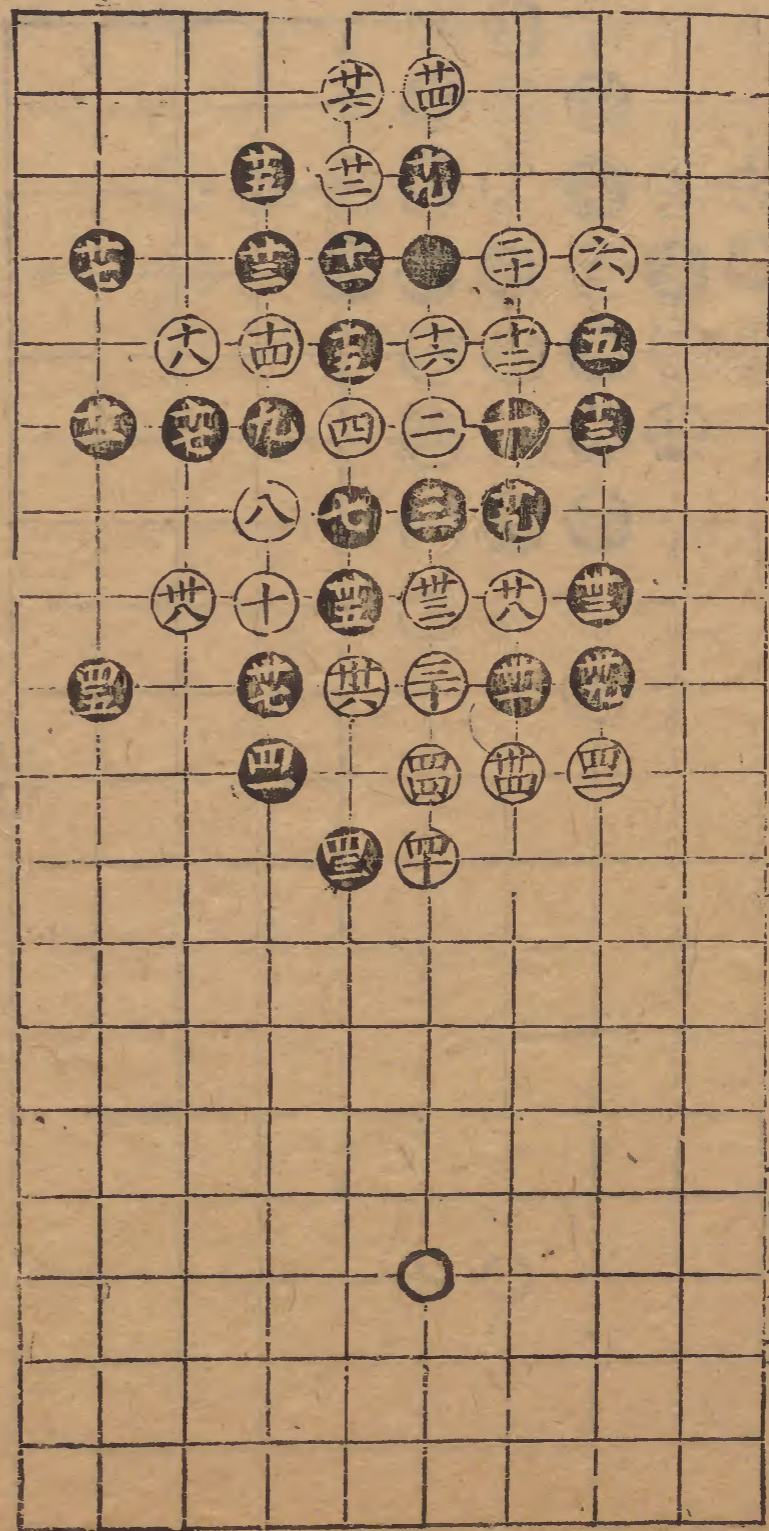 廿六 廿四
廿五 廿二 十九
廿七 廿三 十一 二十 六
十八 十四 十五 十六 十二 五
九 四 二 十三
八 七 三 廿九
卅八 十 卅五 卅二 廿八 卅三
四五 卅七 卅六 三十 卅一 卅九
四一 四四 卅四 四二
四三 四十